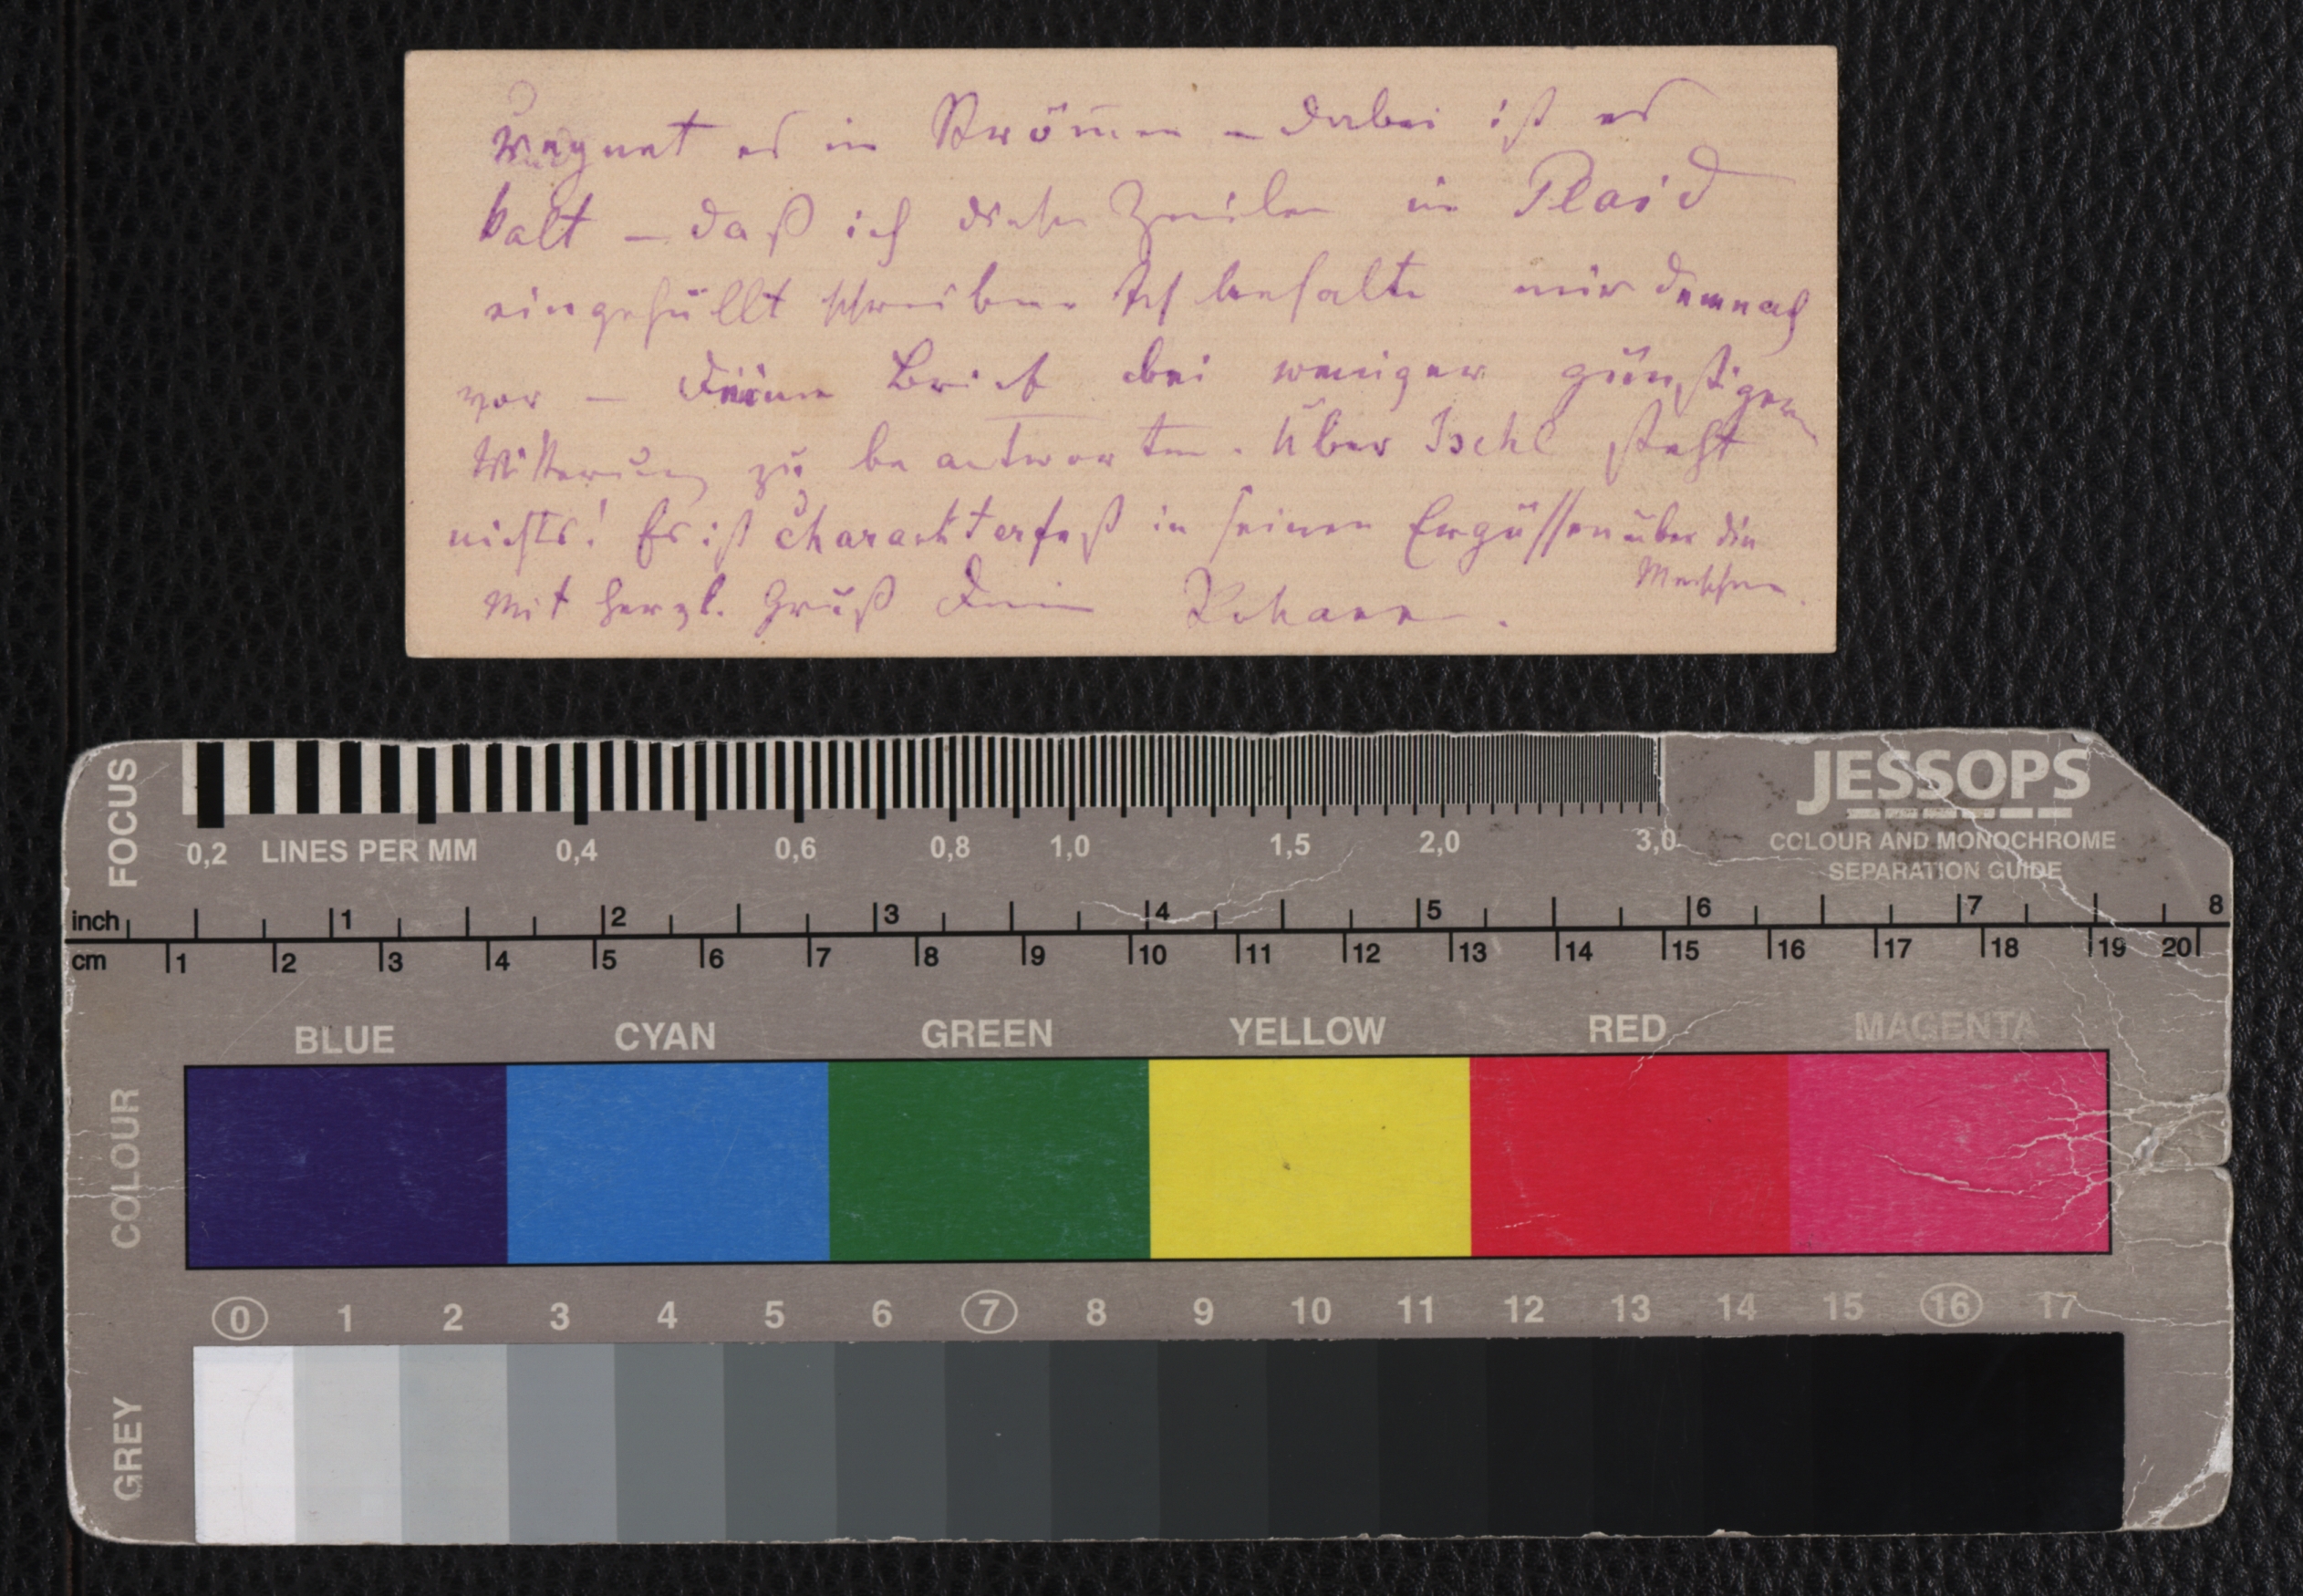 regnet es in Strömen – dabei ist es
kalt – daß ich diese Zeilen in Plaid
eingehüllt schreibe. Ich behalte mir demnach
vor – Deinen Brief bei weniger günstigen
Witterung zu beantworten. Über Ischl steht
nichts! Es ist charackterfest in seinen Ergüssen über die
Menschen.
Mit herzl. Gruß Dein Johann.
FOCUS
0,2 LINES PER MM 0,4 0,6 0,8 1,0 1,5 2,0 3,0
JESSOPS
COLOUR AND MONOCHROME
SEPARATION GUIDE
inch 1 2 3 4 5 6 7 8
cm 1 2 3 4 5 6 7 8 9 10 11 12 13 14 15 16 17 18 19 20
BLUE CYAN GREEN YELLOW RED MAGENTA
COLOUR
0 1 2 3 4 5 6 7 8 9 10 11 12 13 14 15 16 17
GREY